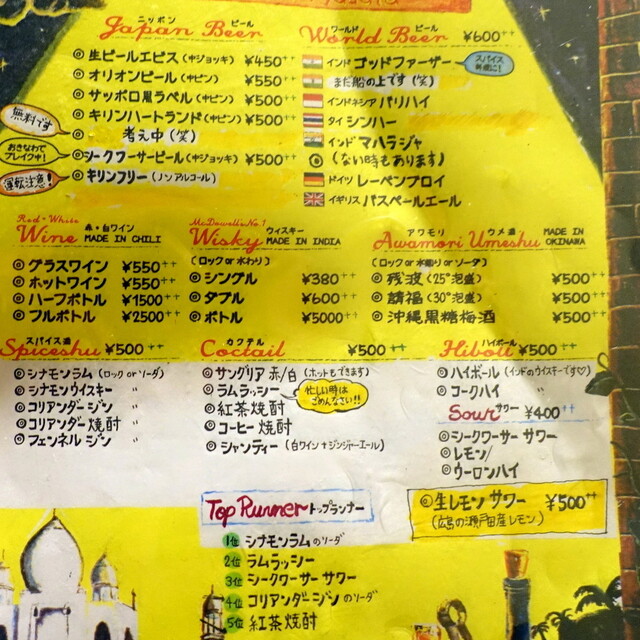 ニッポン ビール
Japan Beer
◎ 生ビールエビス (中ジョッキ) ¥450++
◎ オリオンビール (中ビン) ¥550++
◎ サッポロ黒ラベル (中ビン) ¥500++
◎ キリンハートランド (中ビン) ¥500++
無料です
◎ 考え中 (笑)
おきなわでブレイク中!
◎ シークワーサービール (中ジョッキ) ¥500++
運転注意!
◎ キリンフリー (ノンアルコール)
ワールド ビール
World Beer ¥600++
インド ゴッドファーザー
スパイス料理に!
まだ船の上です (笑)
インドネシア バリハイ
タイ シンハー
インド マハラジャ
◎ (ない時もあります)
ドイツ レーベンブロイ
イギリス バスペールエール
Red・White
Wine 赤・白ワイン MADE IN CHILI
◎ グラスワイン ¥550++
◎ ホットワイン ¥550++
◎ ハーフボトル ¥1500++
◎ フルボトル ¥2500++
McDowell's No.1
Wisky ウィスキー MADE IN INDIA
(ロック or 水わり)
◎ シングル ¥380++
◎ ダブル ¥600++
◎ ボトル ¥5000++
アワモリ ウメ酒
Awamori Umeshu MADE IN OKINAWA
(ロック or 水割り or ソーダ)
◎ 残波 (25°泡盛) ¥500++
◎ 請福 (30°泡盛) ¥500++
◎ 沖縄黒糖梅酒 ¥500++
スパイス酒
Spiceshu ¥500++
◎ シナモンラム (ロック or ソーダ)
◎ シナモンウイスキー 〃
◎ コリアンダージン 〃
◎ コリアンダー焼酎 〃
◎ フェンネル ジン 〃
カクテル
Coctail ¥500++
◎ サングリア 赤/白 (ホットもできます)
◎ ラムラッシー
忙しい時はごめんなさい!!
◎ 紅茶焼酎
◎ コーヒー焼酎
◎ シャンティー (白ワイン+ジンジャーエール)
ハイボール
Hiboll ¥500++
◎ ハイボール (インドのウイスキーです♡)
◎ コークハイ
Sour サワー ¥400++
◎ シークワーサー サワー
◎ レモン/
◎ ウーロンハイ
◎ 生レモンサワー ¥500++
(広島の瀬戸田産レモン)
Top Runner トップランナー
1位 シナモンラムのソーダ
2位 ラムラッシー
3位 シークワーサー サワー
4位 コリアンダージンのソーダ
5位 紅茶焼酎